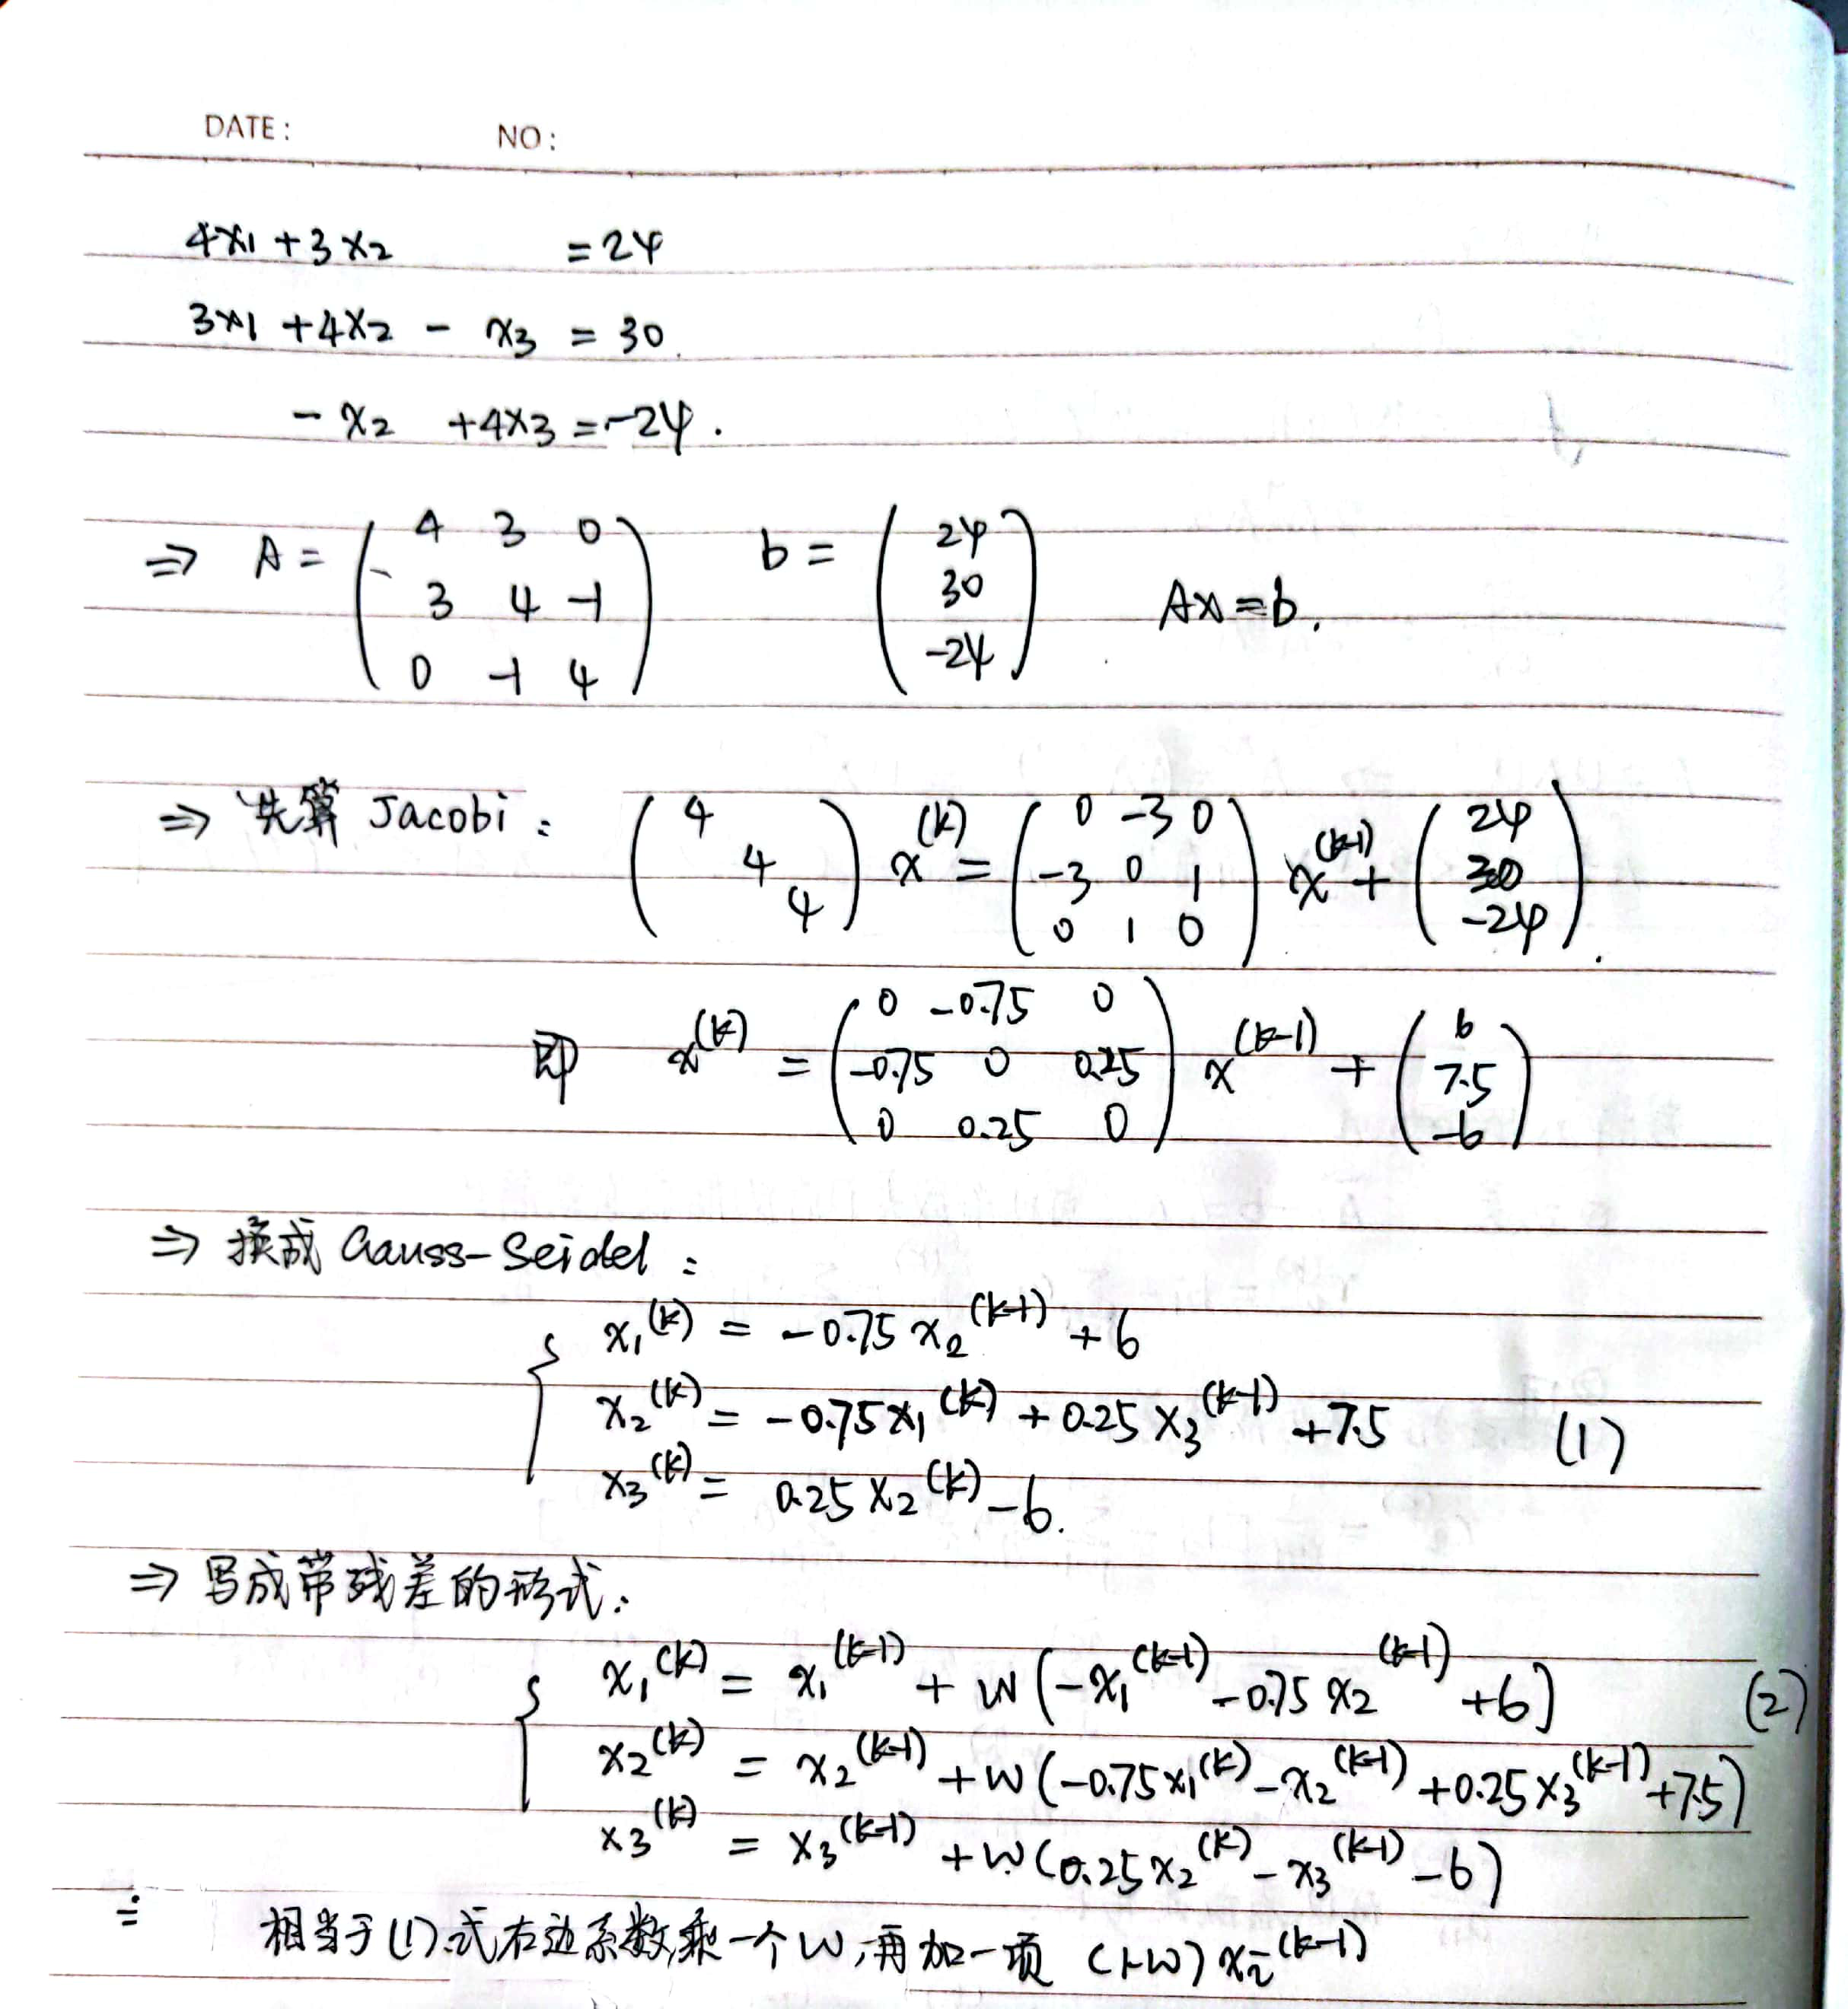 DATE: NO:
4x₁ + 3x₂ = 24
3x₁ + 4x₂ - x₃ = 30
- x₂ + 4x₃ = -24.
⇒ A = ( 4 3 0 ; 3 4 -1 ; 0 -1 4 ) b = ( 24 ; 30 ; -24 ) Ax = b.
⇒ 先算 Jacobi: ( 4 ; 4 ; 4 ) x^(k) = ( 0 -3 0 ; -3 0 1 ; 0 1 0 ) x^(k-1) + ( 24 ; 30 ; -24 ).
即 x^(k) = ( 0 -0.75 0 ; -0.75 0 0.25 ; 0 0.25 0 ) x^(k-1) + ( 6 ; 7.5 ; -6 )
⇒ 换成 Gauss-Seidel:
x₁^(k) = -0.75 x₂^(k-1) + 6
x₂^(k) = -0.75 x₁^(k) + 0.25 x₃^(k-1) + 7.5 (1)
x₃^(k) = 0.25 x₂^(k) - 6.
⇒ 写成带残差的形式:
x₁^(k) = x₁^(k-1) + w (-x₁^(k-1) - 0.75 x₂^(k-1) + 6) (2)
x₂^(k) = x₂^(k-1) + w (-0.75 x₁^(k) - x₂^(k-1) + 0.25 x₃^(k-1) + 7.5)
x₃^(k) = x₃^(k-1) + w (0.25 x₂^(k) - x₃^(k-1) - 6)
相当于(1)式右边系数乘一个w,再加一项 (1-w) xᵢ^(k-1)